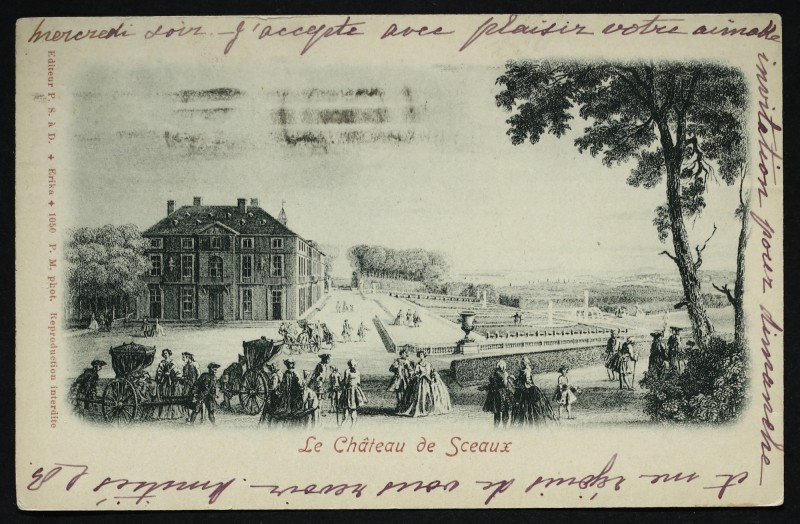 mercredi soir - J'accepte avec plaisir votre aimable
invitation pour dimanche
et me réjouis de vous revoir. Amitiés
Editeur P. S. à D. + Erika + 1050 P. M. phot. Reproduction interdite
Le Château de Sceaux